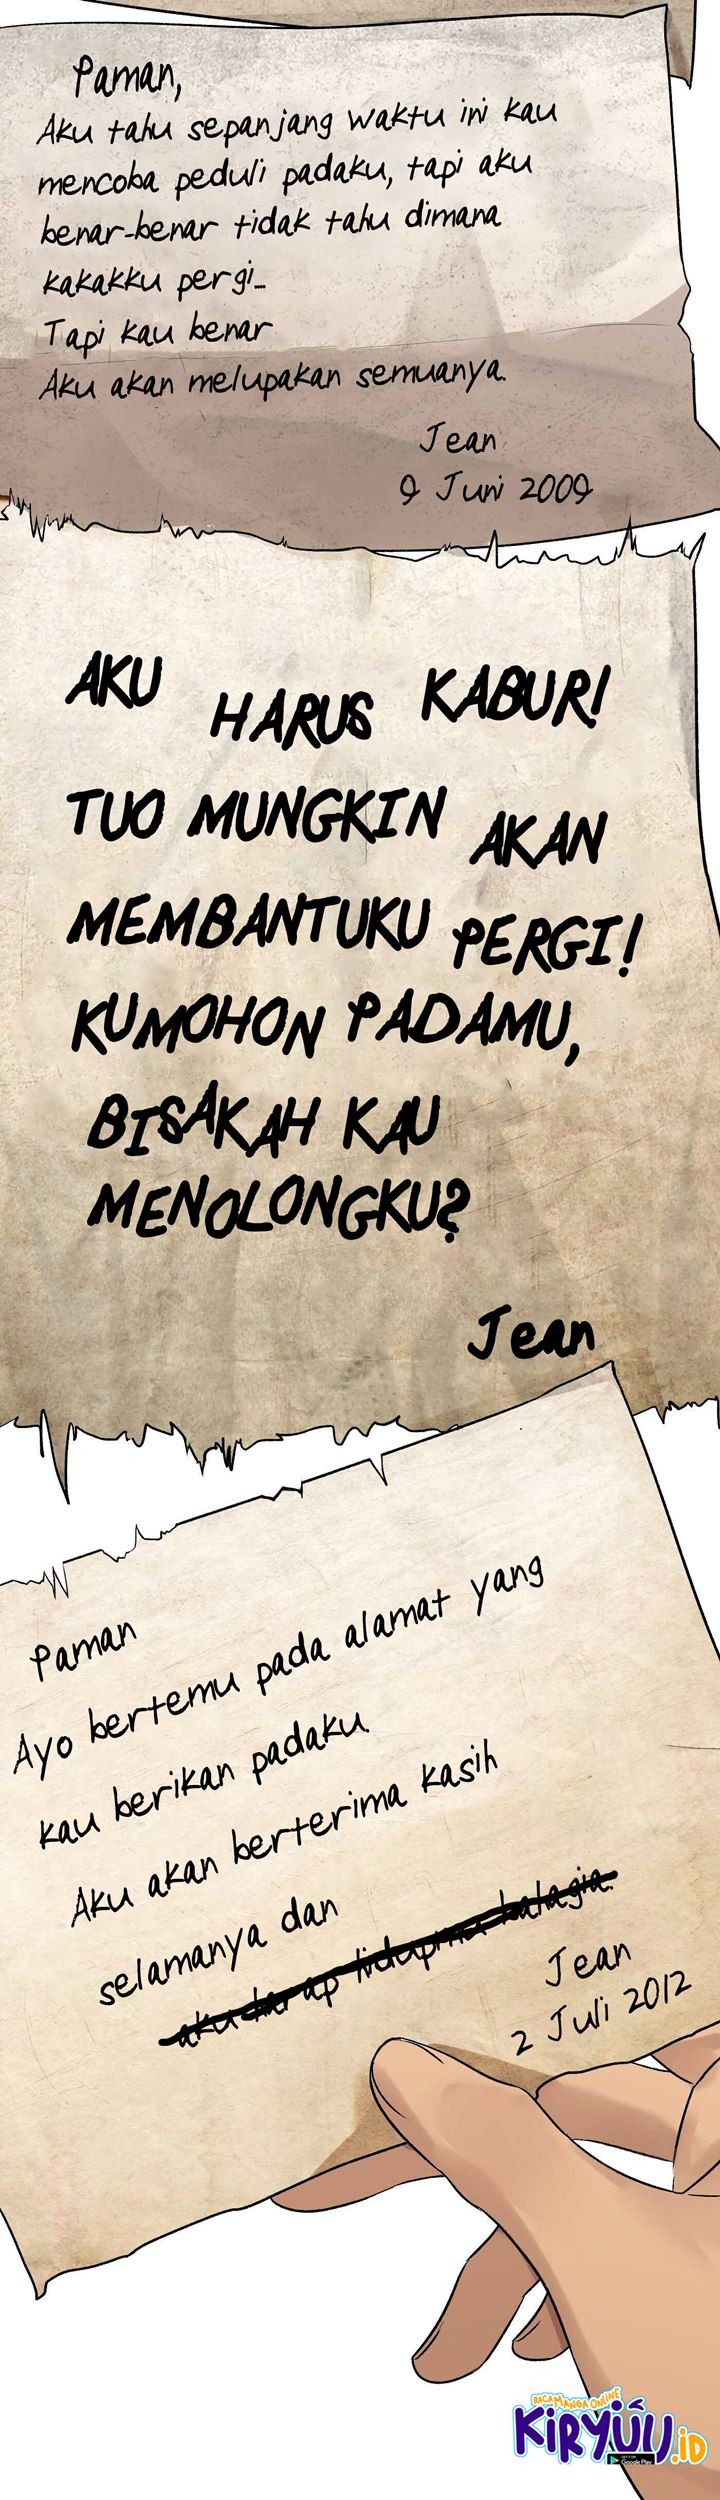 Paman,
Aku tahu sepanjang waktu ini kau
mencoba peduli padaku, tapi aku
benar-benar tidak tahu dimana
kakakku pergi...
Tapi kau benar
Aku akan melupakan semuanya.
Jean
9 Juni 2009
AKU HARUS KABUR!
TUO MUNGKIN AKAN
MEMBANTUKU PERGI!
KUMOHON PADAMU,
BISAKAH KAU
MENOLONGKU?
Jean
Paman
Ayo bertemu pada alamat yang
kau berikan padaku.
Aku akan berterima kasih
selamanya dan
aku harap hidupmu bahagia.
Jean
2 Juli 2012
BACA MANGA ONLINE
KIRYUU.ID
GET IT ON
Google Play